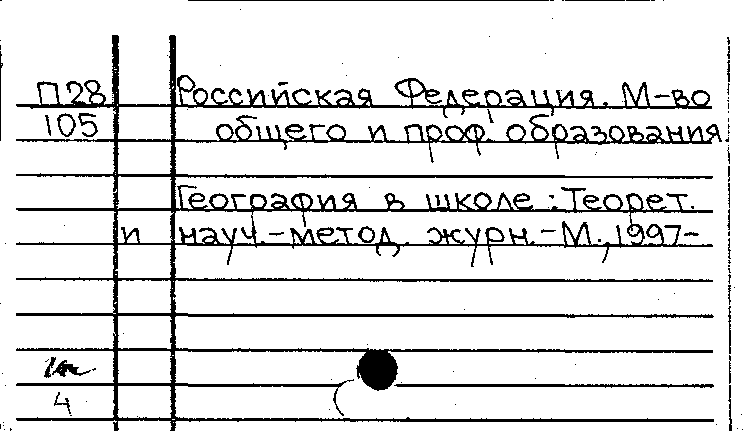 П28 Российская Федерация. М-во
105 общего и проф. образования.
География в школе : Теорет.
и науч.-метод. журн.-М., 1997-
4